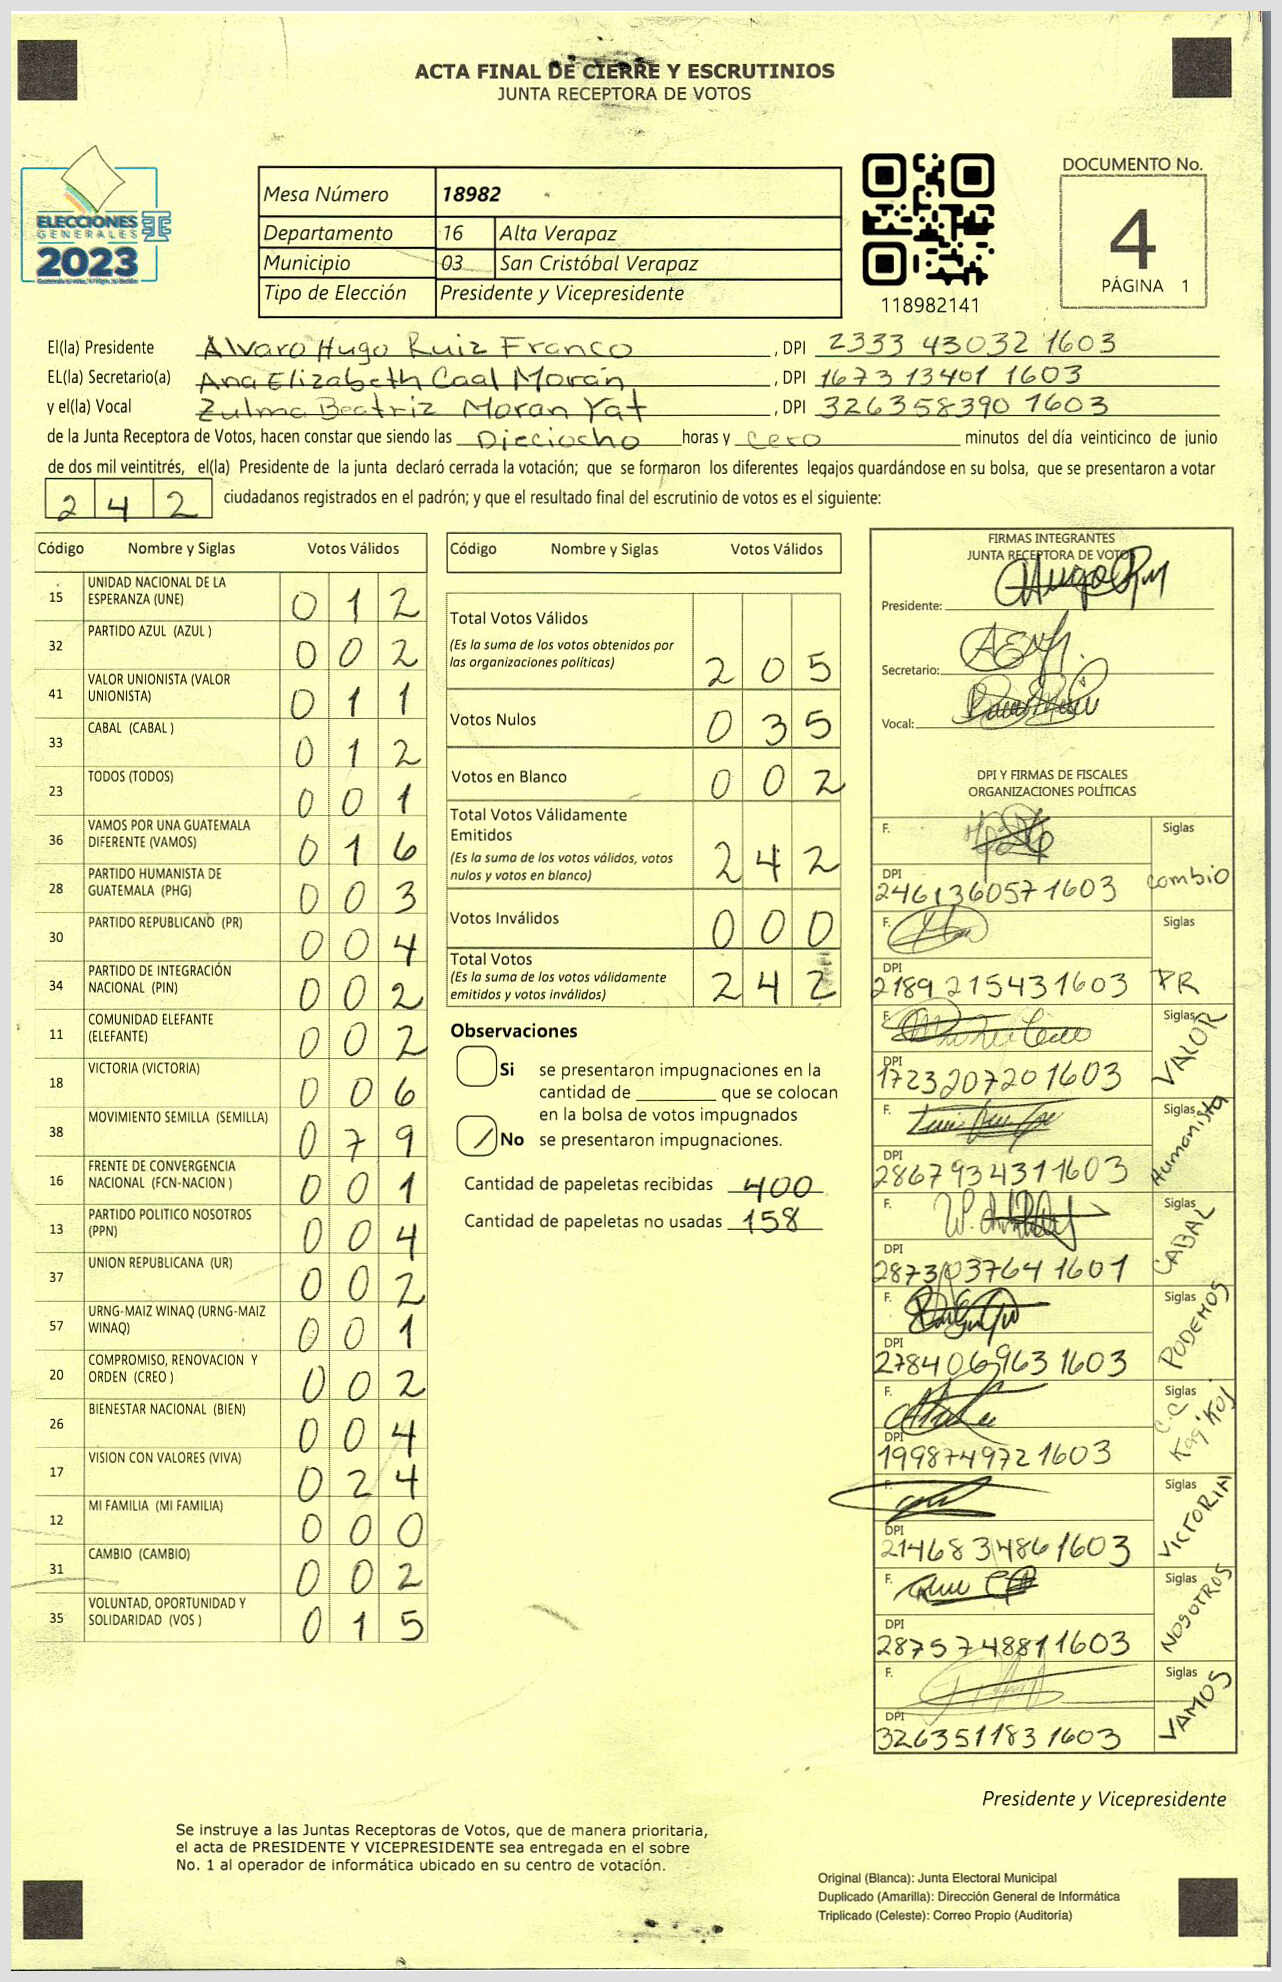 ACTA FINAL DE CIERRE Y ESCRUTINIOS
JUNTA RECEPTORA DE VOTOS
ELECCIONES
GENERALES
2023
Mesa Número 18982
Departamento 16 Alta Verapaz
Municipio 03 San Cristóbal Verapaz
Tipo de Elección Presidente y Vicepresidente
118982141
DOCUMENTO No.
4
PÁGINA 1
El(la) Presidente Alvaro Hugo Ruiz Franco, DPI 2333 43032 1603
EL(la) Secretario(a) Ana Elizabeth Caal Morán, DPI 1673 13401 1603
y el(la) Vocal Zulma Beatriz Moran Yat, DPI 326358390 1603
de la Junta Receptora de Votos, hacen constar que siendo las Dieciocho horas y cero minutos del día veinticinco de junio
de dos mil veintitrés, el(la) Presidente de la junta declaró cerrada la votación; que se formaron los diferentes legajos guardándose en su bolsa, que se presentaron a votar
242 ciudadanos registrados en el padrón; y que el resultado final del escrutinio de votos es el siguiente:
Código Nombre y Siglas Votos Válidos
15 UNIDAD NACIONAL DE LA ESPERANZA (UNE) 012
32 PARTIDO AZUL (AZUL ) 002
41 VALOR UNIONISTA (VALOR UNIONISTA) 011
33 CABAL (CABAL ) 012
23 TODOS (TODOS) 001
36 VAMOS POR UNA GUATEMALA DIFERENTE (VAMOS) 016
28 PARTIDO HUMANISTA DE GUATEMALA (PHG) 003
30 PARTIDO REPUBLICANO (PR) 004
34 PARTIDO DE INTEGRACIÓN NACIONAL (PIN) 002
11 COMUNIDAD ELEFANTE (ELEFANTE) 002
18 VICTORIA (VICTORIA) 006
38 MOVIMIENTO SEMILLA (SEMILLA) 079
16 FRENTE DE CONVERGENCIA NACIONAL (FCN-NACION ) 001
13 PARTIDO POLITICO NOSOTROS (PPN) 004
37 UNION REPUBLICANA (UR) 002
57 URNG-MAIZ WINAQ (URNG-MAIZ WINAQ) 001
20 COMPROMISO, RENOVACION Y ORDEN (CREO ) 002
26 BIENESTAR NACIONAL (BIEN) 004
17 VISION CON VALORES (VIVA) 024
12 MI FAMILIA (MI FAMILIA) 000
31 CAMBIO (CAMBIO) 002
35 VOLUNTAD, OPORTUNIDAD Y SOLIDARIDAD (VOS ) 015
Código Nombre y Siglas Votos Válidos
Total Votos Válidos
(Es la suma de los votos obtenidos por las organizaciones políticas) 205
Votos Nulos 035
Votos en Blanco 002
Total Votos Válidamente Emitidos
(Es la suma de los votos válidos, votos nulos y votos en blanco) 242
Votos Inválidos 000
Total Votos
(Es la suma de los votos válidamente emitidos y votos inválidos) 242
Observaciones
Si se presentaron impugnaciones en la
cantidad de ________ que se colocan
en la bolsa de votos impugnados
No se presentaron impugnaciones.
Cantidad de papeletas recibidas 400
Cantidad de papeletas no usadas 158
FIRMAS INTEGRANTES
JUNTA RECEPTORA DE VOTOS
Presidente:
Secretario:
Vocal:
DPI Y FIRMAS DE FISCALES
ORGANIZACIONES POLÍTICAS
F. Siglas
DPI 2461360571603 Cambio
F. Siglas
DPI 2189215431603 PR
F. Siglas
DPI 1723207201603 VALOR
F. Siglas
DPI 2867934311603 Humanista
F. Siglas
DPI 2873037641601 CABAL
F. Siglas
DPI 2784069631603 PODEMOS
F. Siglas
DPI 1998749721603 C.C. Kaq'Koj
F. Siglas
DPI 2146834861603 VICTORIA
F. Siglas
DPI 2875748811603 NOSOTROS
F. Siglas
DPI 3263511831603 VAMOS
Presidente y Vicepresidente
Se instruye a las Juntas Receptoras de Votos, que de manera prioritaria,
el acta de PRESIDENTE Y VICEPRESIDENTE sea entregada en el sobre
No. 1 al operador de informática ubicado en su centro de votación.
Original (Blanca): Junta Electoral Municipal
Duplicado (Amarilla): Dirección General de Informática
Triplicado (Celeste): Correo Propio (Auditoría)